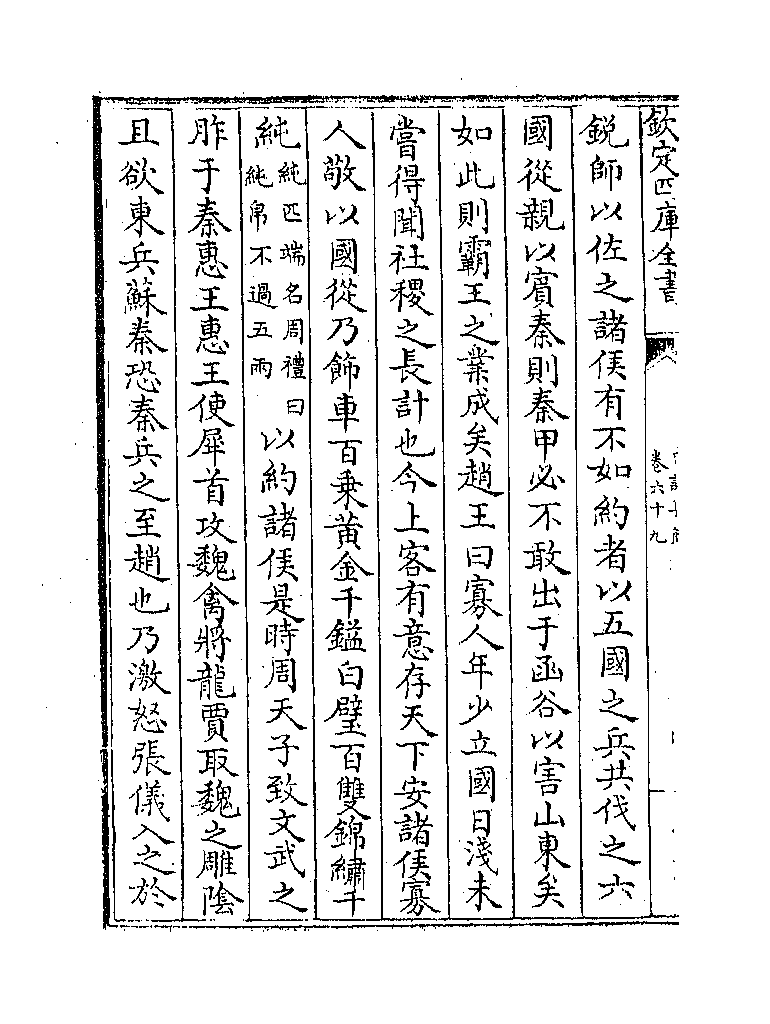 欽定四庫全書
卷六十九
銳師以佐之諸侯有不如約者以五國之兵共伐之六
國從親以賓秦則秦甲必不敢出于函谷以害山東矣
如此則霸王之業成矣趙王曰寡人年少立國日淺未
嘗得聞社稷之長計也今上客有意存天下安諸侯寡
人敬以國從乃飾車百乗黄金千鎰白璧百雙錦繡千
純純匹端名周禮曰純帛不過五兩以約諸侯是時周天子致文武之
胙于秦惠王惠王使犀首攻魏禽將龍賈取魏之雕隂
且欲東兵蘇秦恐秦兵之至趙也乃激怒張儀入之於